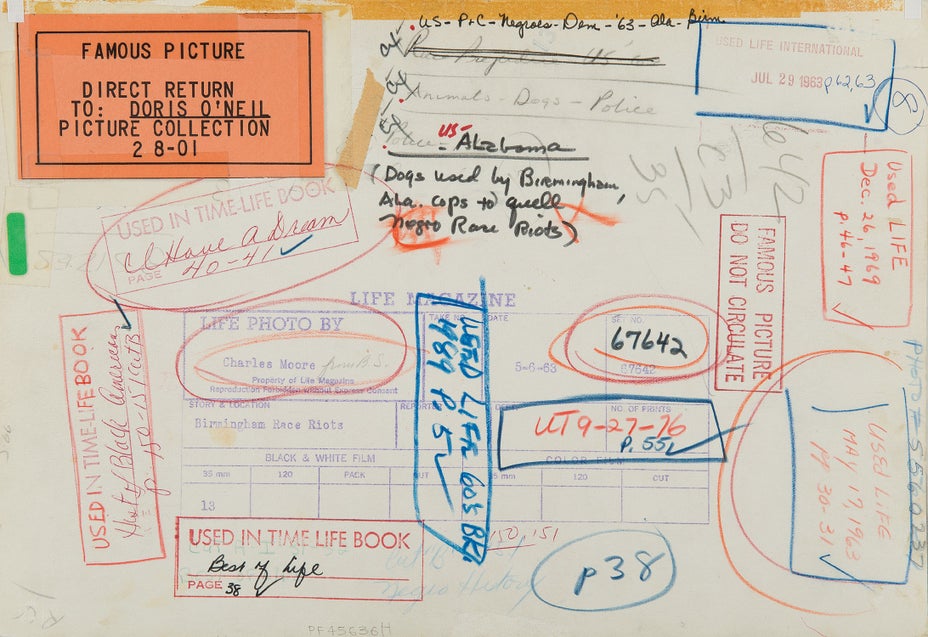 FAMOUS PICTURE
DIRECT RETURN
TO: DORIS O'NEIL
PICTURE COLLECTION
2 8-01
US- P+C- Negroes- Dem- '63- Ala- Birm.
Race Prejudice US
Animals - Dogs - Police
Police - US - Alabama
(Dogs used by Birmingham,
Ala. cops to quell
Negro Race Riots)
USED LIFE INTERNATIONAL
JUL 29 1963 p62,63
8
Used LIFE
Dec. 26, 1969
p46-47
USED IN TIME-LIFE BOOK
I Have A Dream
PAGE 40-41
FAMOUS PICTURE
DO NOT CIRCULATE
LIFE MAGAZINE
LIFE PHOTO BY
Charles Moore from B.S.
Property of Life Magazine
Reproduction Forbidden Without Express Consent
DATE
5-6-63
SET NO.
67642
67642
STORY & LOCATION
Birmingham Race Riots
REPORT
NO. OF PRINTS
UT 9-27-76
P. 55
BLACK & WHITE FILM
COLOR FILM
35 mm
120
PACK
CUT
mm
120
CUT
13
USED LIFE 60's BK
489 P. 5
USED IN TIME-LIFE BOOK
Hist of Black Americans
p 150-151
USED LIFE
MAY 17, 1963
PP 30-31
PHOTO # 556023
USED IN TIME LIFE BOOK
Best of Life
PAGE 38
150, 151
Negro History
p 38
PF45636H